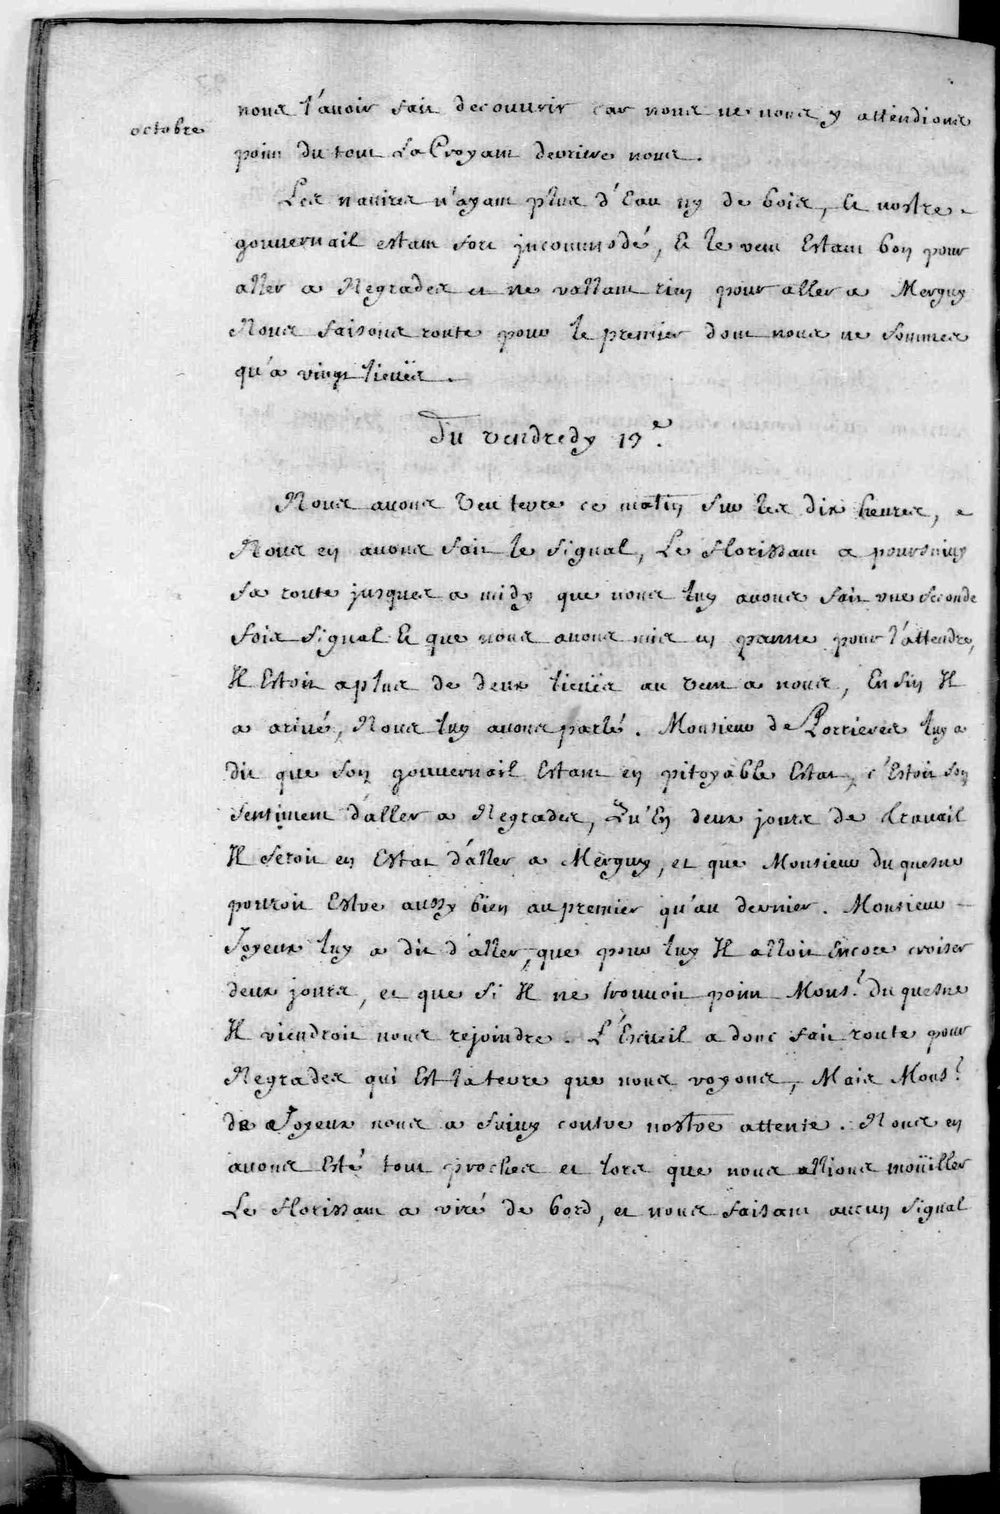 octobre
nous l'avoir fait decouurir car nous ne nous y attendions
point du tout La Croyant derriere nous.
Les nauires n'ayant plus d'Eau ny de bois, Et nostre
gouuernail estant fort jncommodé, Et le vent Estant bon pour
aller a Negrades et ne vallant rien pour aller a Merguy
Nous faisons route pour le premier dont nous ne sommes
qu'a vingt lieuës.
Du vendredy 13.e
Nous auons Veu terre ce matin sur les dix heures,
Nous en auons fait le signal, Le florissant a poursuiuy
sa route jusques a midy que nous luy auons fait vne seconde
fois signal Et que nous auons mis en panne pour l'attendre,
Il Estoit a plus de deux lieuës au vent a nous, Enfin Il
a ariué, Nous luy auons parlé. Monsieur de Porrieres luy a
dit que son gouuernail Estant en pitoyable Estat, c'Estoit son
sentiment d'aller a Negrades, Qu'En deux jours de trauail
Il seroit en Estat d'aller a Merguy, et que Monsieur du quesne
pouroit Estre aussy bien au premier qu'au dernier. Monsieur
Joyeux luy a dit d'aller, que pour luy Il alloit Encore croiser
deux jours, et que si Il ne trouuoit point Mons.r du quesne
Il viendroit nous rejoindre. L'Escueil a donc fait route pour
Negrades qui Est la terre que nous voyons, Mais Mons.r
de Joyeux nous a suiuy contre nostre attente. Nous en
auons Esté tout proches et lors que nous allions moüiller
Le florissant a viré de bord, et nous faisant aucun signal